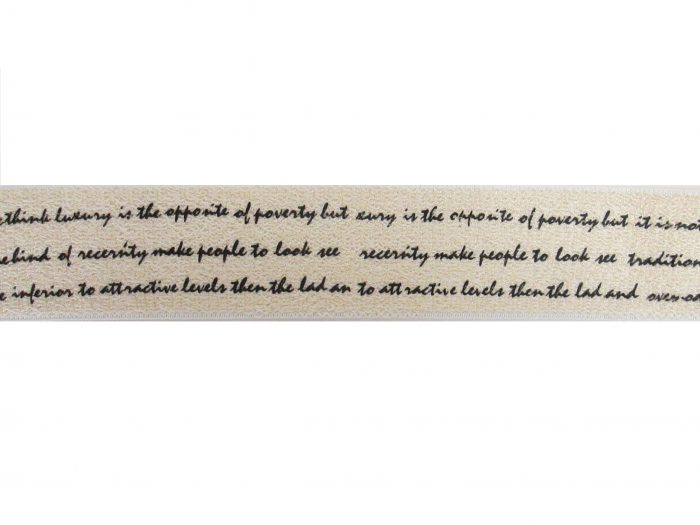 think luxury is the opposite of poverty but xury is the opposite of poverty but it is not
ehind of recersity make people to look see recersity make people to look see tradition
e inferior to attractive levels then the lad an to attractive levels then the lad and over-oa